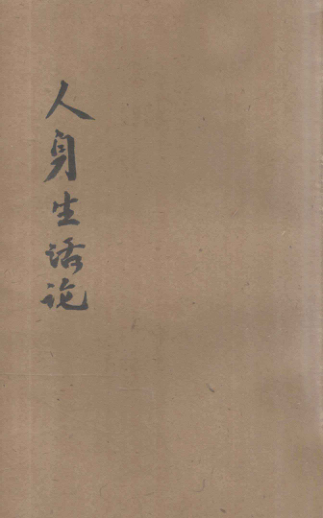 人身生活论